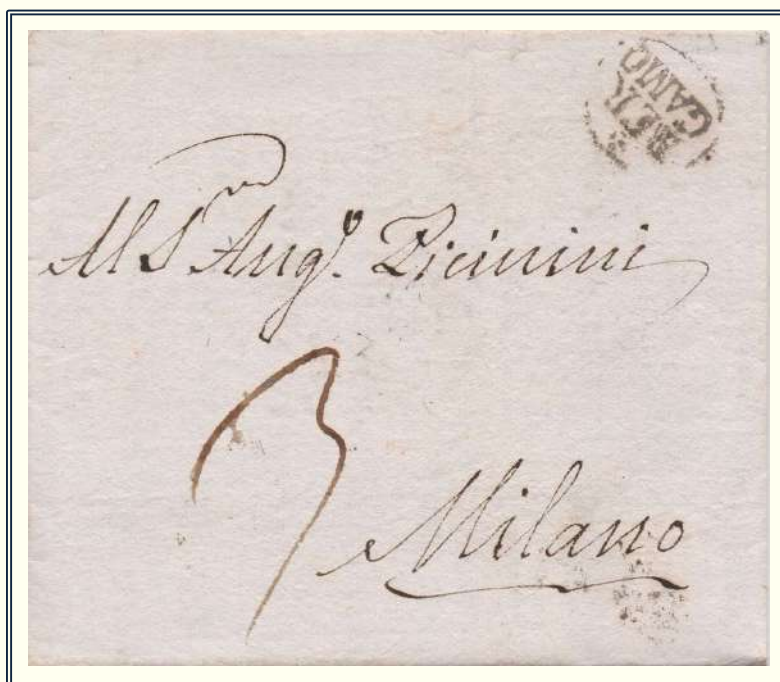 BER
GAMO
Al S.r Ang.o Picinini
3
Milano